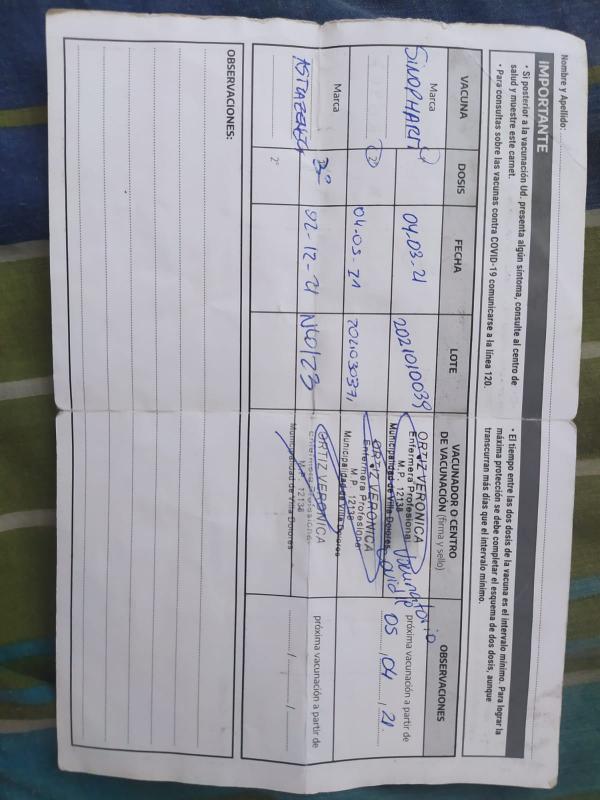 Nombre y Apellido:
IMPORTANTE
• Si posterior a la vacunación Ud. presenta algún síntoma, consulte al centro de
salud y muestre este carnet.
• Para consultas sobre las vacunas contra COVID-19 comunicarse a la línea 120.
• El tiempo entre las dos dosis de la vacuna es el intervalo mínimo. Para lograr la
máxima protección se debe completar el esquema de dos dosis, aunque
transcurran más días que el intervalo mínimo.
VACUNA DOSIS FECHA LOTE VACUNADOR O CENTRO DE VACUNACIÓN (firma y sello) OBSERVACIONES
Marca
SINOPHARM
04.03.21 2021010039
ORTIZ VERONICA
Enfermera Profesional
M.P. 12138
Municipalidad de Villa Dolores
Vacunatorio
Covid
próxima vacunación a partir de
05 / 04 / 21
2º 04.05.21
ORTIZ VERONICA
Enfermera Profesional
M.P. 12138
Municipalidad de Villa Dolores
Marca
ASTRAZENECA
3º 02-12-21
ORTIZ VERONICA
Enfermera Profesional
M.P. 12138
Municipalidad de Villa Dolores
próxima vacunación a partir de
/ /
2º
OBSERVACIONES: